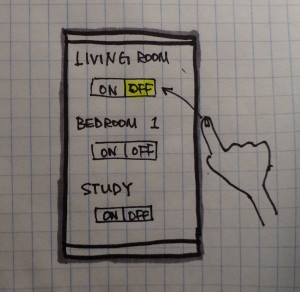 LIVING ROOM
ON OFF
BEDROOM 1
ON OFF
STUDY
ON OFF